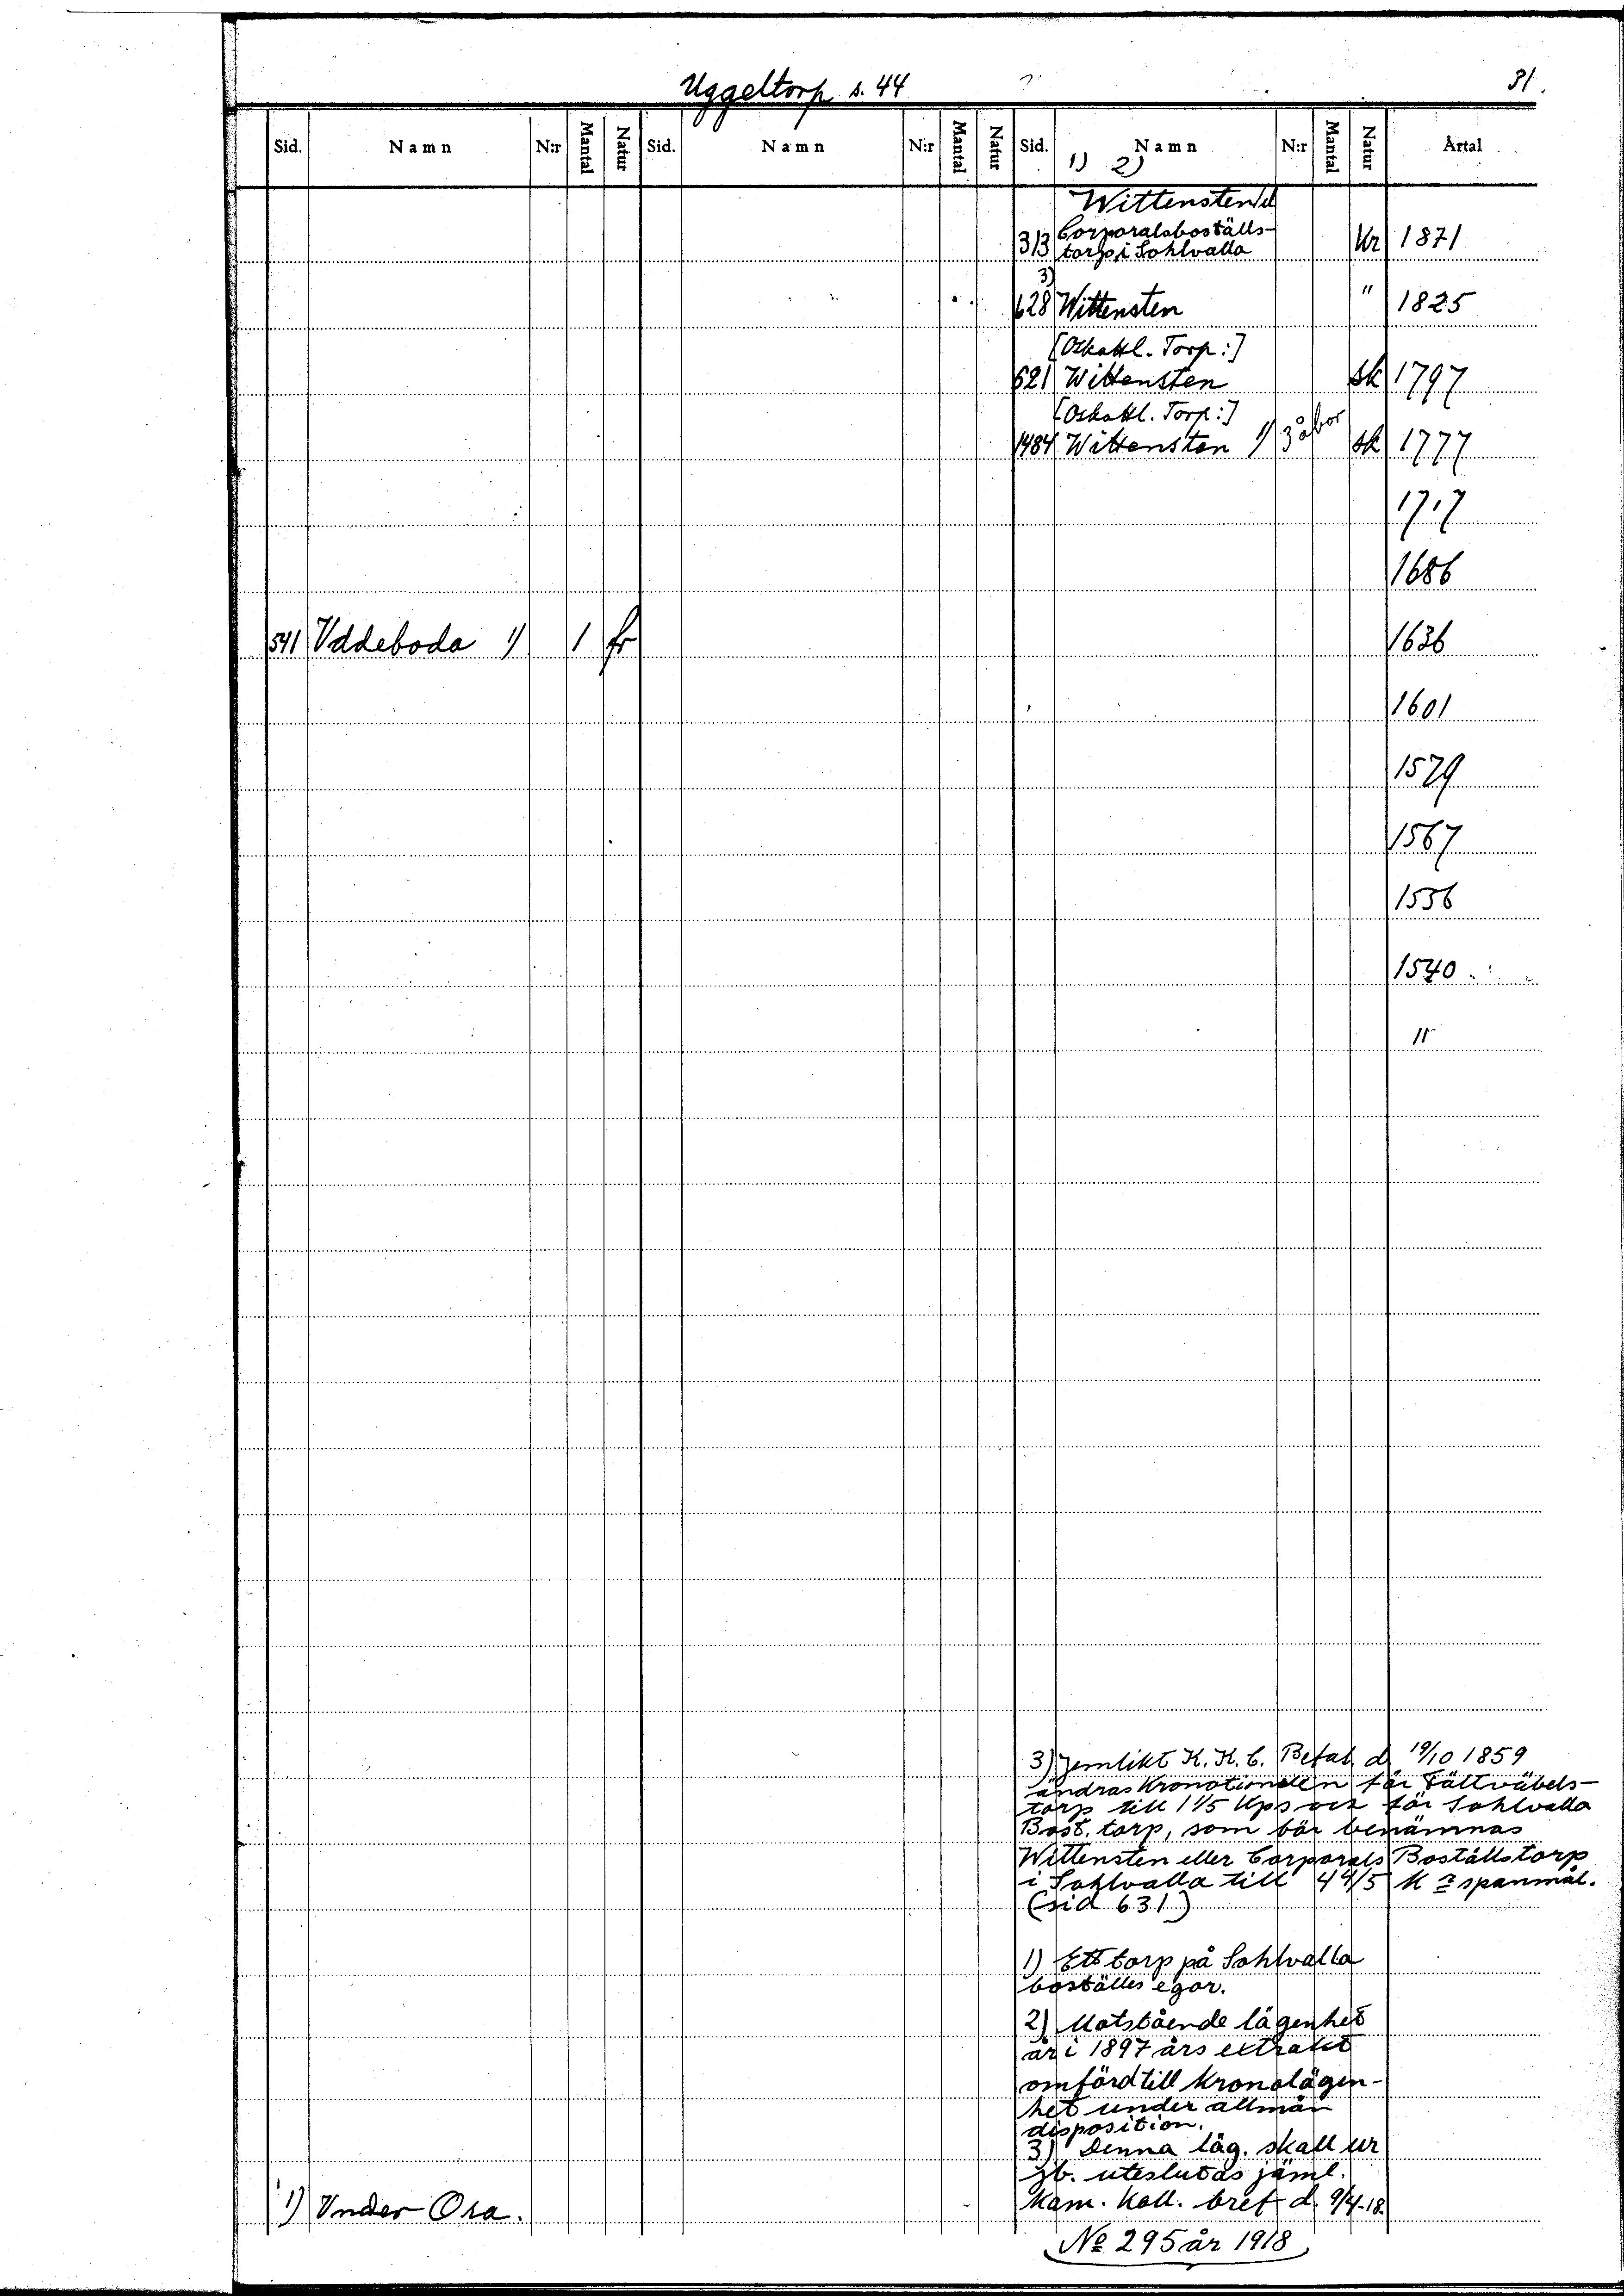 Uggeltorp s. 44
31.
Sid. Namn N:r Mantal Natur Sid. Namn N:r Mantal Natur Sid. Namn N:r Mantal Natur Årtal
1) 2)
Wittensten
313 Corporalsboställs-
torp i Sohlvalla Kr 1871
3)
628 Wittensten " 1825
[Oskattl. Torp:]
621 Wittensten sk 1797
[Oskattl. Torp:]
1484 Wittensten 1) 3 åbor sk 1777
1717
1686
541 Uddeboda 1) 1 fr 1636
1601
1579
1567
1556
1540
"
3) Jemlikt K. K. C. Befal. d. 19/10 1859
ändras Kronotionden för Fältväbels-
torp till 1 1/5 Kps och för Sohlvalla
Bost. torp, som bör benämnas
Wittensten eller Corporals Boställstorp
i Sohlvalla till 4 4/5 K spanmål.
(sid 631)
1) Ett torp på Sohlvalla
boställes egor.
2) Motstående lägenhet
är i 1897 års extrakt
omförd till Kronolägen-
het under allmän
disposition.
3) Denna läg. skall ur
jb. uteslutas jäml.
Kam. Koll. bref d. 9/4-18.
No 295 år 1918
1) Under Osa.